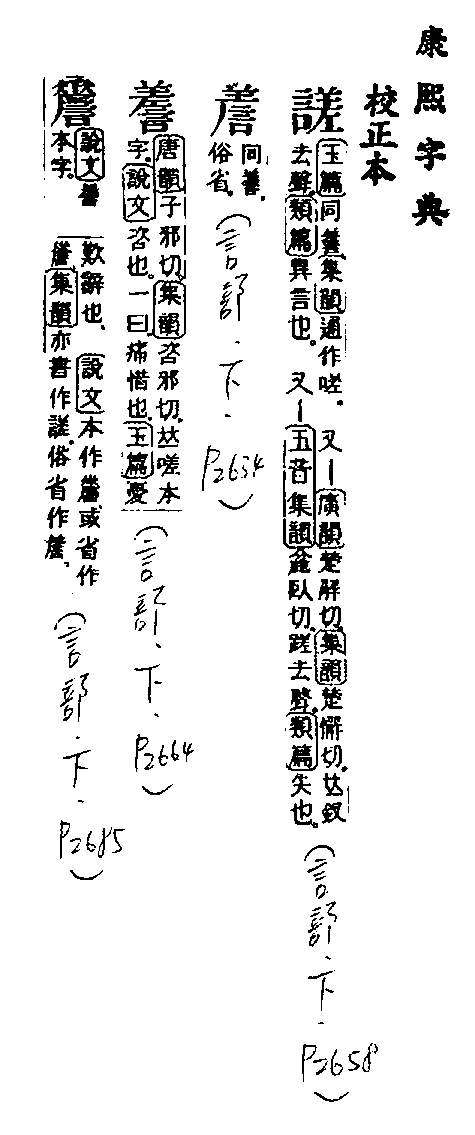 康熙字典
校正本
䜅
玉篇同䜅集韻通作嗟。又｜廣韻楚解切集韻楚懈切𠀤釵
去聲類篇異言也。又｜五音集韻龕臥切蹉去聲類篇失也。
(言部.下.P2658)
同䜅。
俗省。
(言部.下.P2634)
唐韻子邪切集韻咨邪切𠀤嗟本
字。說文咨也。一曰痛惜也玉篇憂
歎辭也。說文本作䜅或省作
集韻亦書作䜅俗省作
(言部.下.P2664)
說文
本字。
(言部.下.P2685)